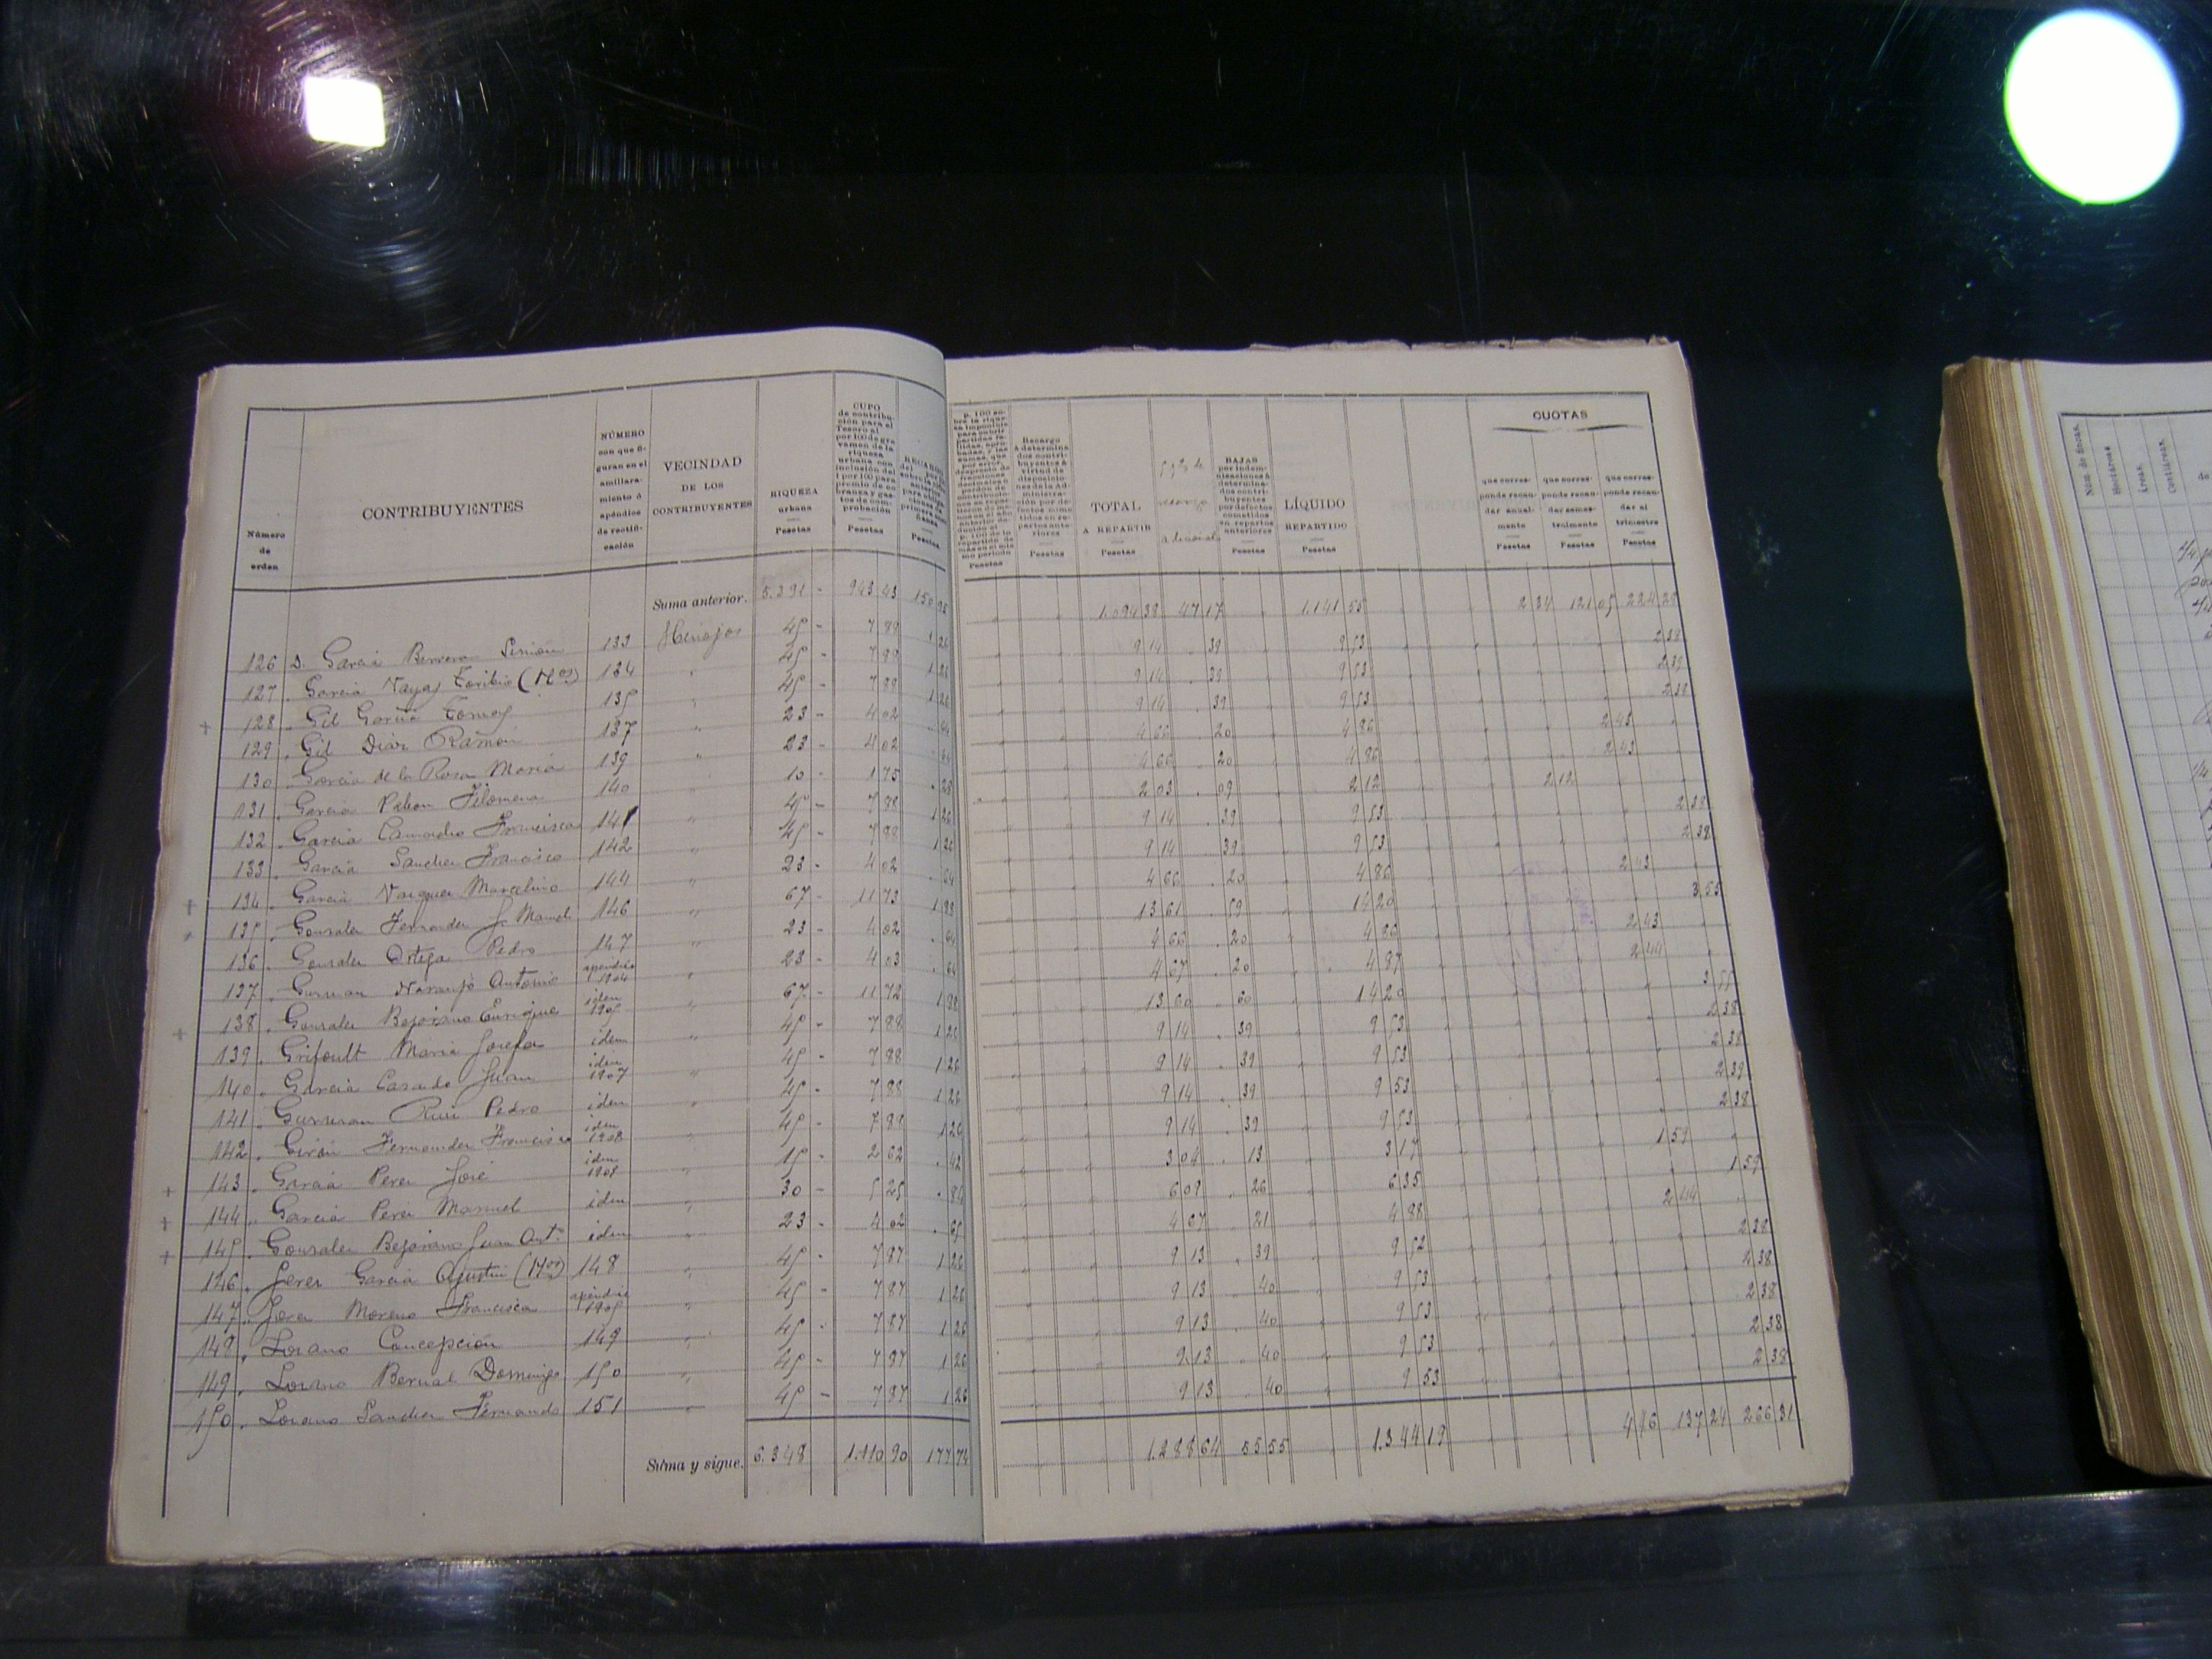 Número de orden
CONTRIBUYENTES
NÚMERO con que figuran en el amillaramiento ó apéndice de rectificación
VECINDAD DE LOS CONTRIBUYENTES
RIQUEZA urbana Pesetas
CUPO de contribución para el Tesoro al por 100 de gravamen de la riqueza urbana con inclusión del 1 por 100 para premio de cobranza y gastos de comprobación Pesetas
Recargo á determinados contribuyentes á virtud de disposiciones de la Administración por defectos cometidos en repartos anteriores Pesetas
TOTAL A REPARTIR Pesetas
BAJAS por indemnizaciones á determinados contribuyentes por defectos cometidos en repartos anteriores
LÍQUIDO REPARTIDO Pesetas
CUOTAS
que corresponde recaudar anualmente Pesetas
que corresponde recaudar semestralmente Pesetas
que corresponde recaudar al trimestre Pesetas
Suma anterior. 5.391 - 943 43 150 95 1.094 38 47 17 1.141 55 2 34 121 05 224 28
126 D. Garcia 133 Hinojos 45 - 7 88 1 26 9 14 39 9 53 2 38
127 Garcia Toribio 134 45 - 7 88 1 26 9 14 39 9 53 2 39
128 Gil Garcia Tomas 135 45 - 7 88 1 26 9 14 39 9 53 2 38
129 Gil Diaz Ramon 137 23 - 4 02 64 4 66 20 4 86 2 43
130 Garcia de la Rosa Maria 139 23 - 4 02 64 4 66 20 4 86 2 43
131 Garcia Pabon Filomena 140 10 - 1 75 28 2 03 09 2 12 2 12
132 Garcia Camacho Francisca 141 45 - 7 88 1 26 9 14 39 9 53 2 38
133 Garcia Sanchez Francisco 142 45 - 7 88 1 26 9 14 39 9 53 2 38
134 Garcia Vazquez Marcelino 144 23 - 4 02 64 4 66 20 4 86 2 43
135 Gonzalez Fernandez J. Manuel 146 67 - 11 73 1 88 13 61 59 14 20 3 55
136 Gonzalez Ortega Pedro 147 23 - 4 02 64 4 66 20 4 86 2 43
137 Guzman Naranjo Antonio apendice 1904 23 - 4 03 64 4 67 20 4 87 2 44
138 Gonzalez Bejarano Enrique idem 67 - 11 72 1 88 13 60 60 14 20 3 55
139 Grifoult Maria Josefa idem 45 - 7 88 1 26 9 14 39 9 53 2 38
140 Garcia Casado Juan idem 1907 45 - 7 88 1 26 9 14 39 9 53 2 38
141 Guzman Ruiz Pedro idem 45 - 7 88 1 26 9 14 39 9 53 2 39
142 Girón Fernandez Francisco idem 1908 45 - 7 88 1 26 9 14 39 9 53 2 38
143 Garcia Perez José idem 15 - 2 62 42 3 04 13 3 17 1 59
144 Garcia Perez Manuel idem 30 - 5 25 84 6 09 26 6 35 1 59
145 Gonzalez Bejarano Juan Ant.º idem 23 - 4 02 65 4 67 21 4 88 2 44
146 Jerez Garcia Agustin 148 45 - 7 87 1 26 9 13 39 9 52 2 38
147 Jerez Moreno Francisca apendice 45 - 7 87 1 26 9 13 40 9 53 2 38
148 Lozano Concepción 149 45 - 7 87 1 26 9 13 40 9 53 2 38
149 Lozano Bernal Domingo 150 45 - 7 87 1 26 9 13 40 9 53 2 38
150 Lozano Sanchez Fernando 151 45 - 7 87 1 26 9 13 40 9 53 2 38
Suma y sigue. 6.348 1.110 90 177 74 1.288 64 55 55 1.344 19 4 46 137 24 266 31
Núm. de fincas.
Hectáreas
Áreas.
Centiáreas.